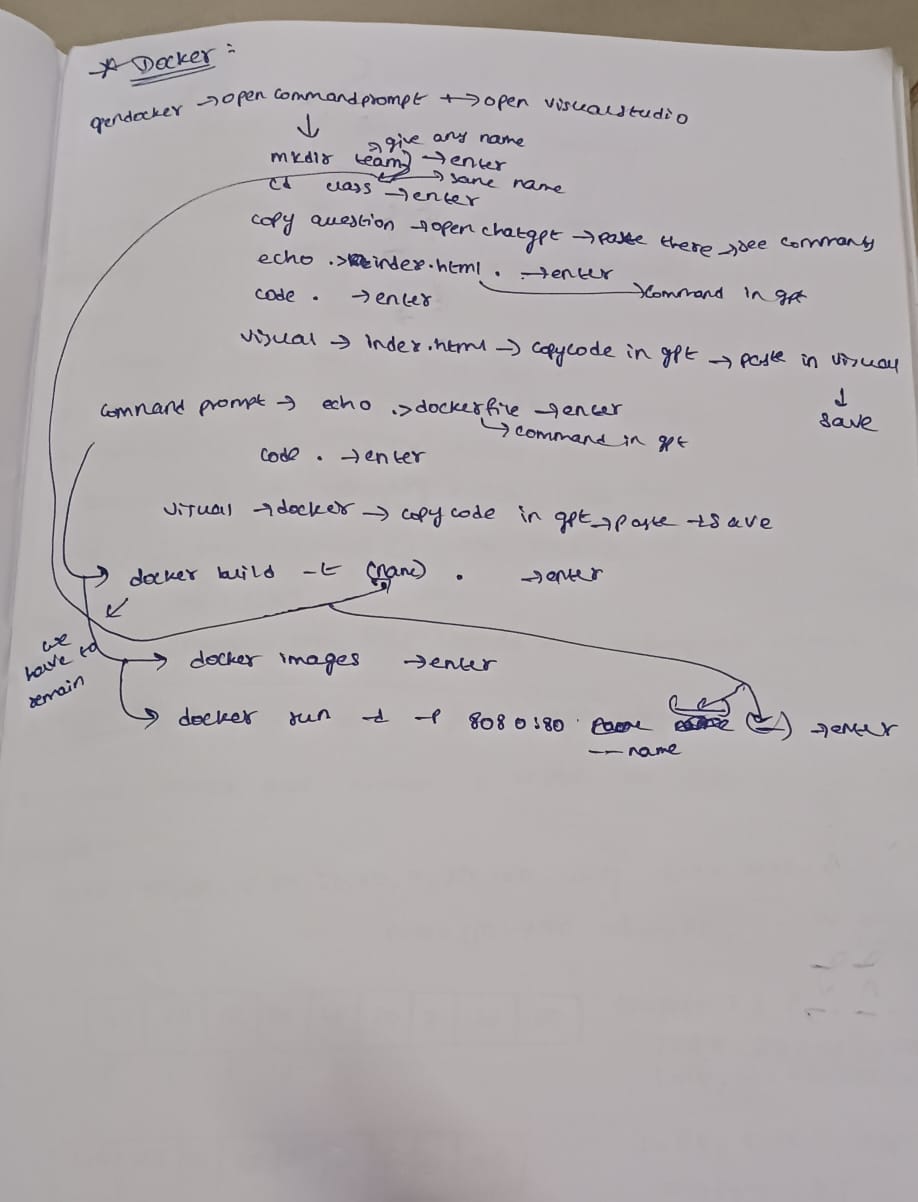 * Docker :
opendocker → open commandprompt → open visualstudio
↓
→ give any name
mkdir team → enter
→ same name
cd class → enter
copy question → open chatgpt → paste there → see commands
echo .> index.html . → enter
→ command in gpt
code . → enter
visual → index.html → copycode in gpt → paste in visual
↓
save
command prompt → echo .>dockerfire → enter
↳ command in gpt
code . → enter
visual → docker → copy code in gpt → paste → save
→ docker build -t (name) . → enter
we
have to
remain
→ docker images → enter
→ docker run -d -p 8080:80 ( ) → enter
--name